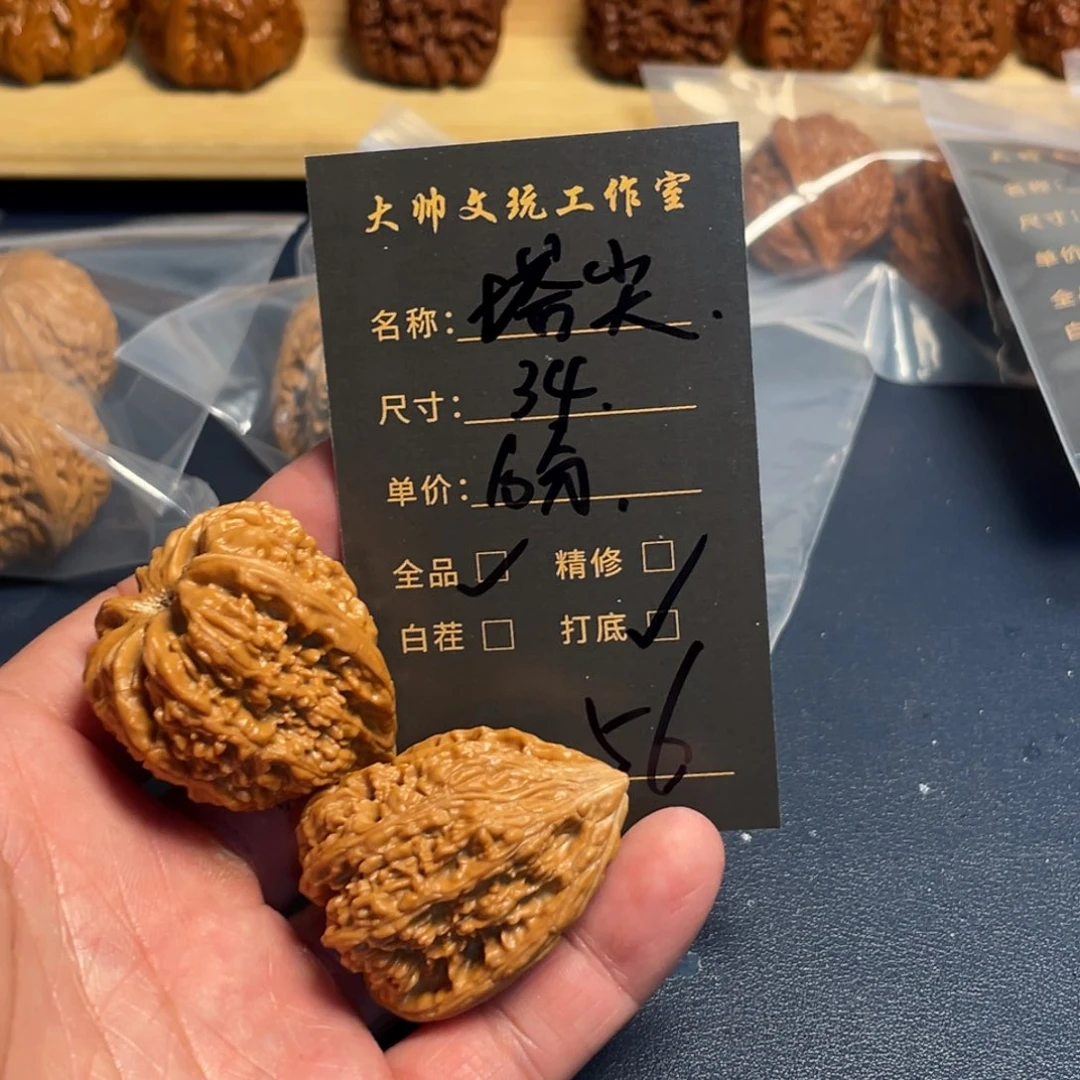 大帅文玩工作室
名称：塔尖.
尺寸：34.
单价：
全品 ☑ 精修 □
白茬 □ 打底 ☑
56
名称：
尺寸：
单价
全